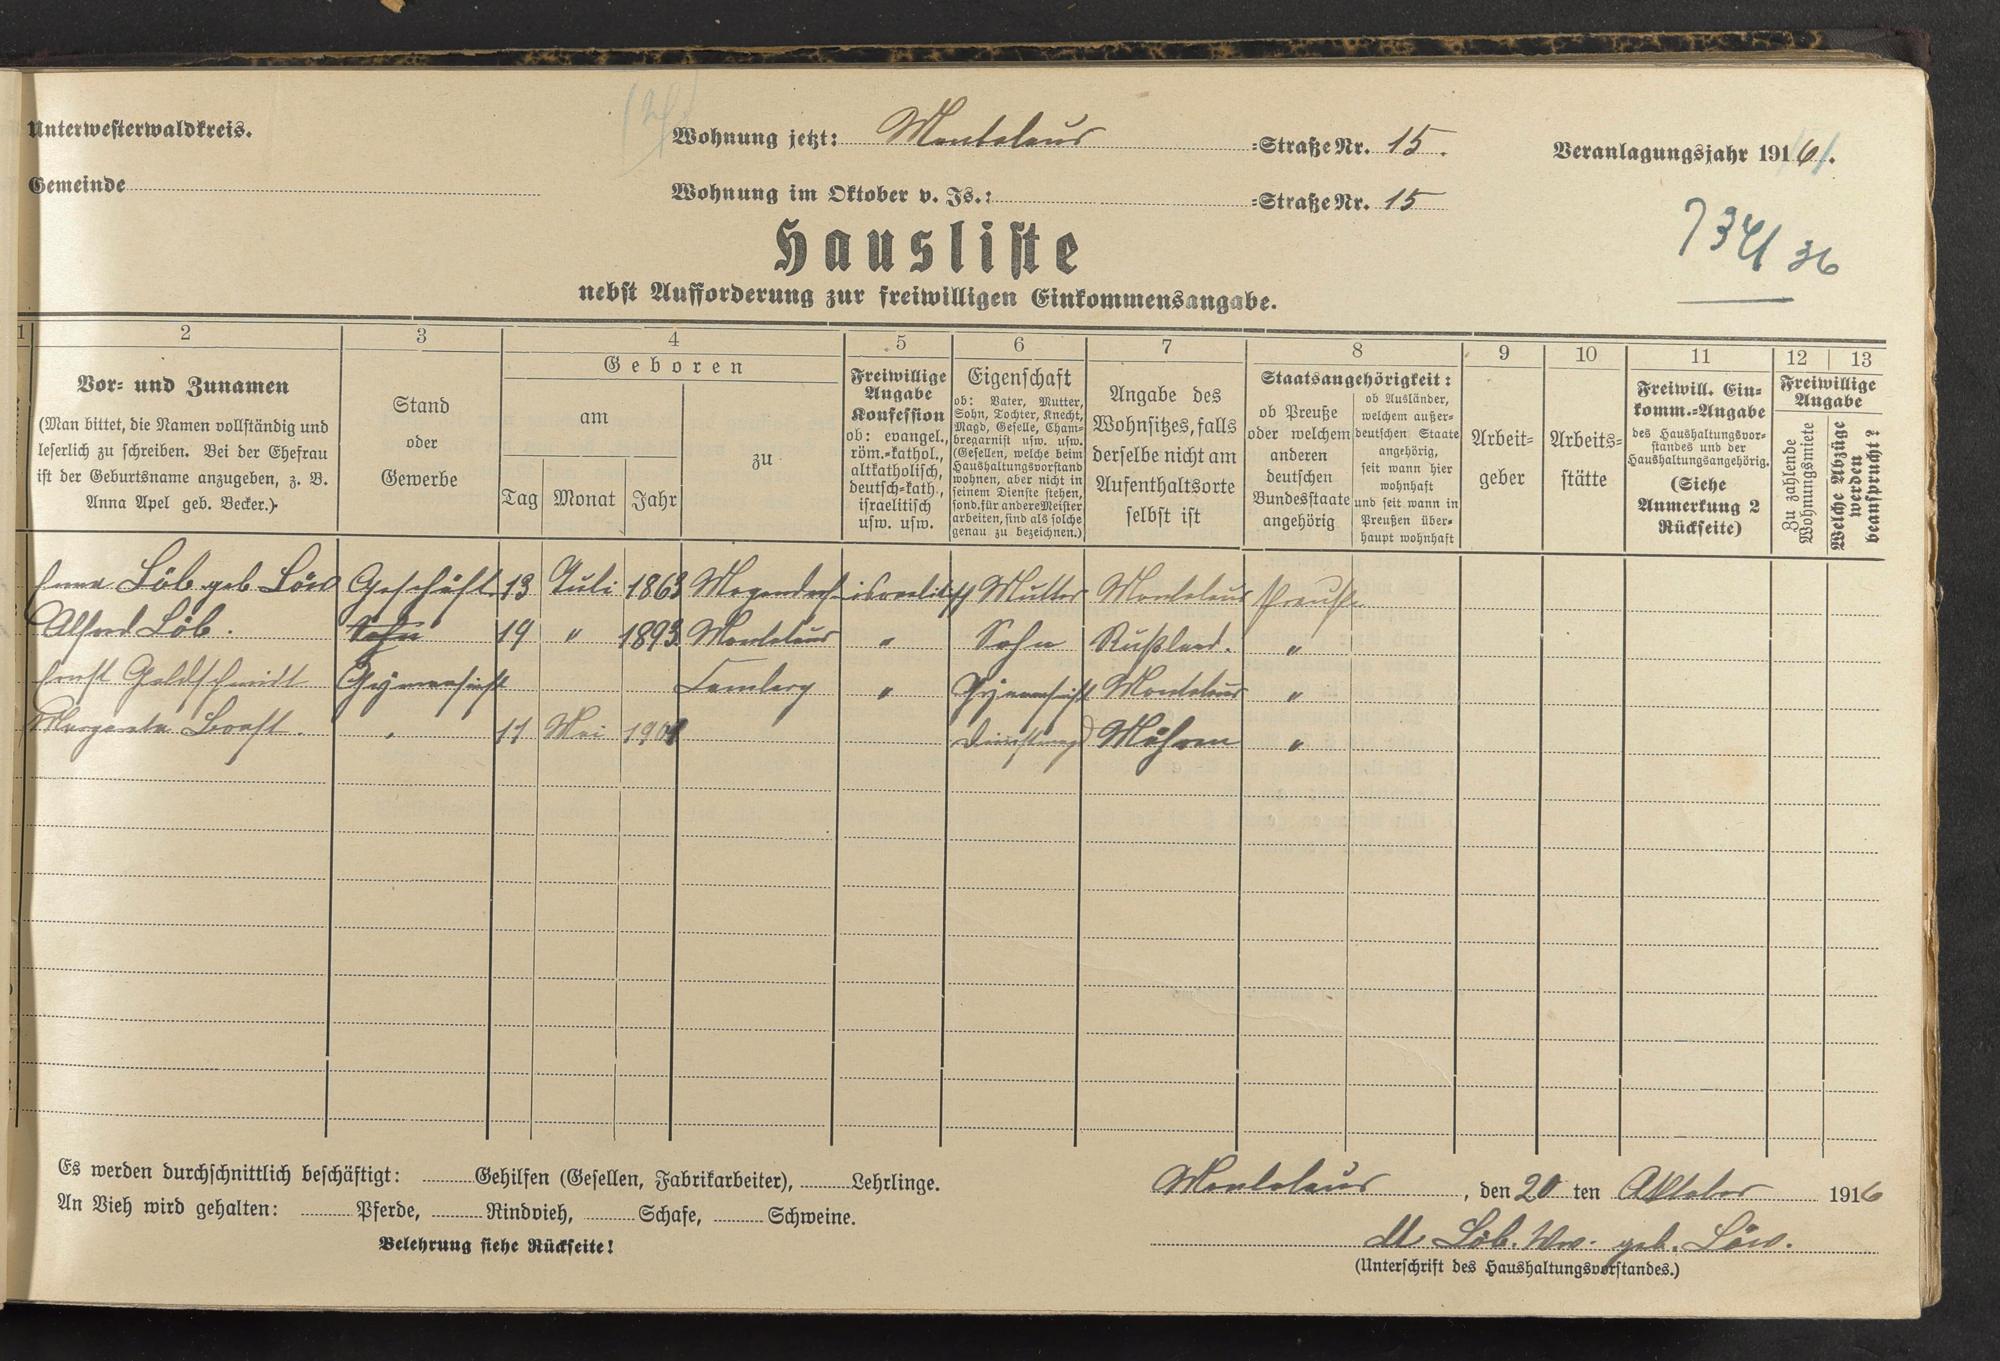 Unterwesterwaldkreis.
Wohnung jetzt: Montabaur =Straße Nr. 15.
Veranlagungsjahr 1916.
Gemeinde
Wohnung im Oktober v. Js.: =Straße Nr. 15
734 36
Hausliste
nebst Aufforderung zur freiwilligen Einkommensangabe.
1 2 3 4 5 6 7 8 9 10 11 12 13
Vor= und Zunamen
(Man bittet, die Namen vollständig und
leserlich zu schreiben. Bei der Ehefrau
ist der Geburtsname anzugeben, z. B.
Anna Apel geb. Becker.)
Stand
oder
Gewerbe
Geboren
am
Tag Monat Jahr
zu
Freiwillige
Angabe
Konfession
ob: evangel.,
röm.=kathol.,
altkatholisch,
deutsch=kath.,
israelitisch
usw. usw.
Eigenschaft
ob: Vater, Mutter,
Sohn, Tochter, Knecht,
Magd, Geselle, Cham=
bregarnist usw. usw.
(Gesellen, welche beim
Haushaltungsvorstand
wohnen, aber nicht in
seinem Dienste stehen,
sond. für andere Meister
arbeiten, sind als solche
genau zu bezeichnen.)
Angabe des
Wohnsitzes, falls
derselbe nicht am
Aufenthaltsorte
selbst ist
Staatsangehörigkeit:
ob Preuße
oder welchem
anderen
deutschen
Bundesstaate
angehörig
ob Ausländer,
welchem außer=
deutschen Staate
angehörig,
seit wann hier
wohnhaft
und seit wann in
Preußen über=
haupt wohnhaft
Arbeit=
geber
Arbeits=
stätte
Freiwill. Ein=
komm.=Angabe
des Haushaltungsvor=
standes und der
Haushaltungsangehörig.
(Siehe
Anmerkung 2
Rückseite)
Freiwillige
Angabe
Zu zahlende
Wohnungsmiete
Welche Abzüge
werden
beansprucht?
Löb geb Löw Geschäft 13 Juli 1863 israelitisch Mutter Montabaur
Alfred Löb. Sohn 19 " 1893 Montabaur " Sohn Rußland. "
Ernst Goldschmidt Gymnasiast Camberg " Gymnasiast Montabaur "
Margareta 11 Mai 1901 Dienstmagd "
Es werden durchschnittlich beschäftigt: Gehilfen (Gesellen, Fabrikarbeiter), Lehrlinge.
An Vieh wird gehalten: Pferde, Rindvieh, Schafe, Schweine.
Belehrung siehe Rückseite!
Montabaur, den 20 ten Oktober 1916
Löb. Ww. geb. Löw.
(Unterschrift des Haushaltungsvorstandes.)